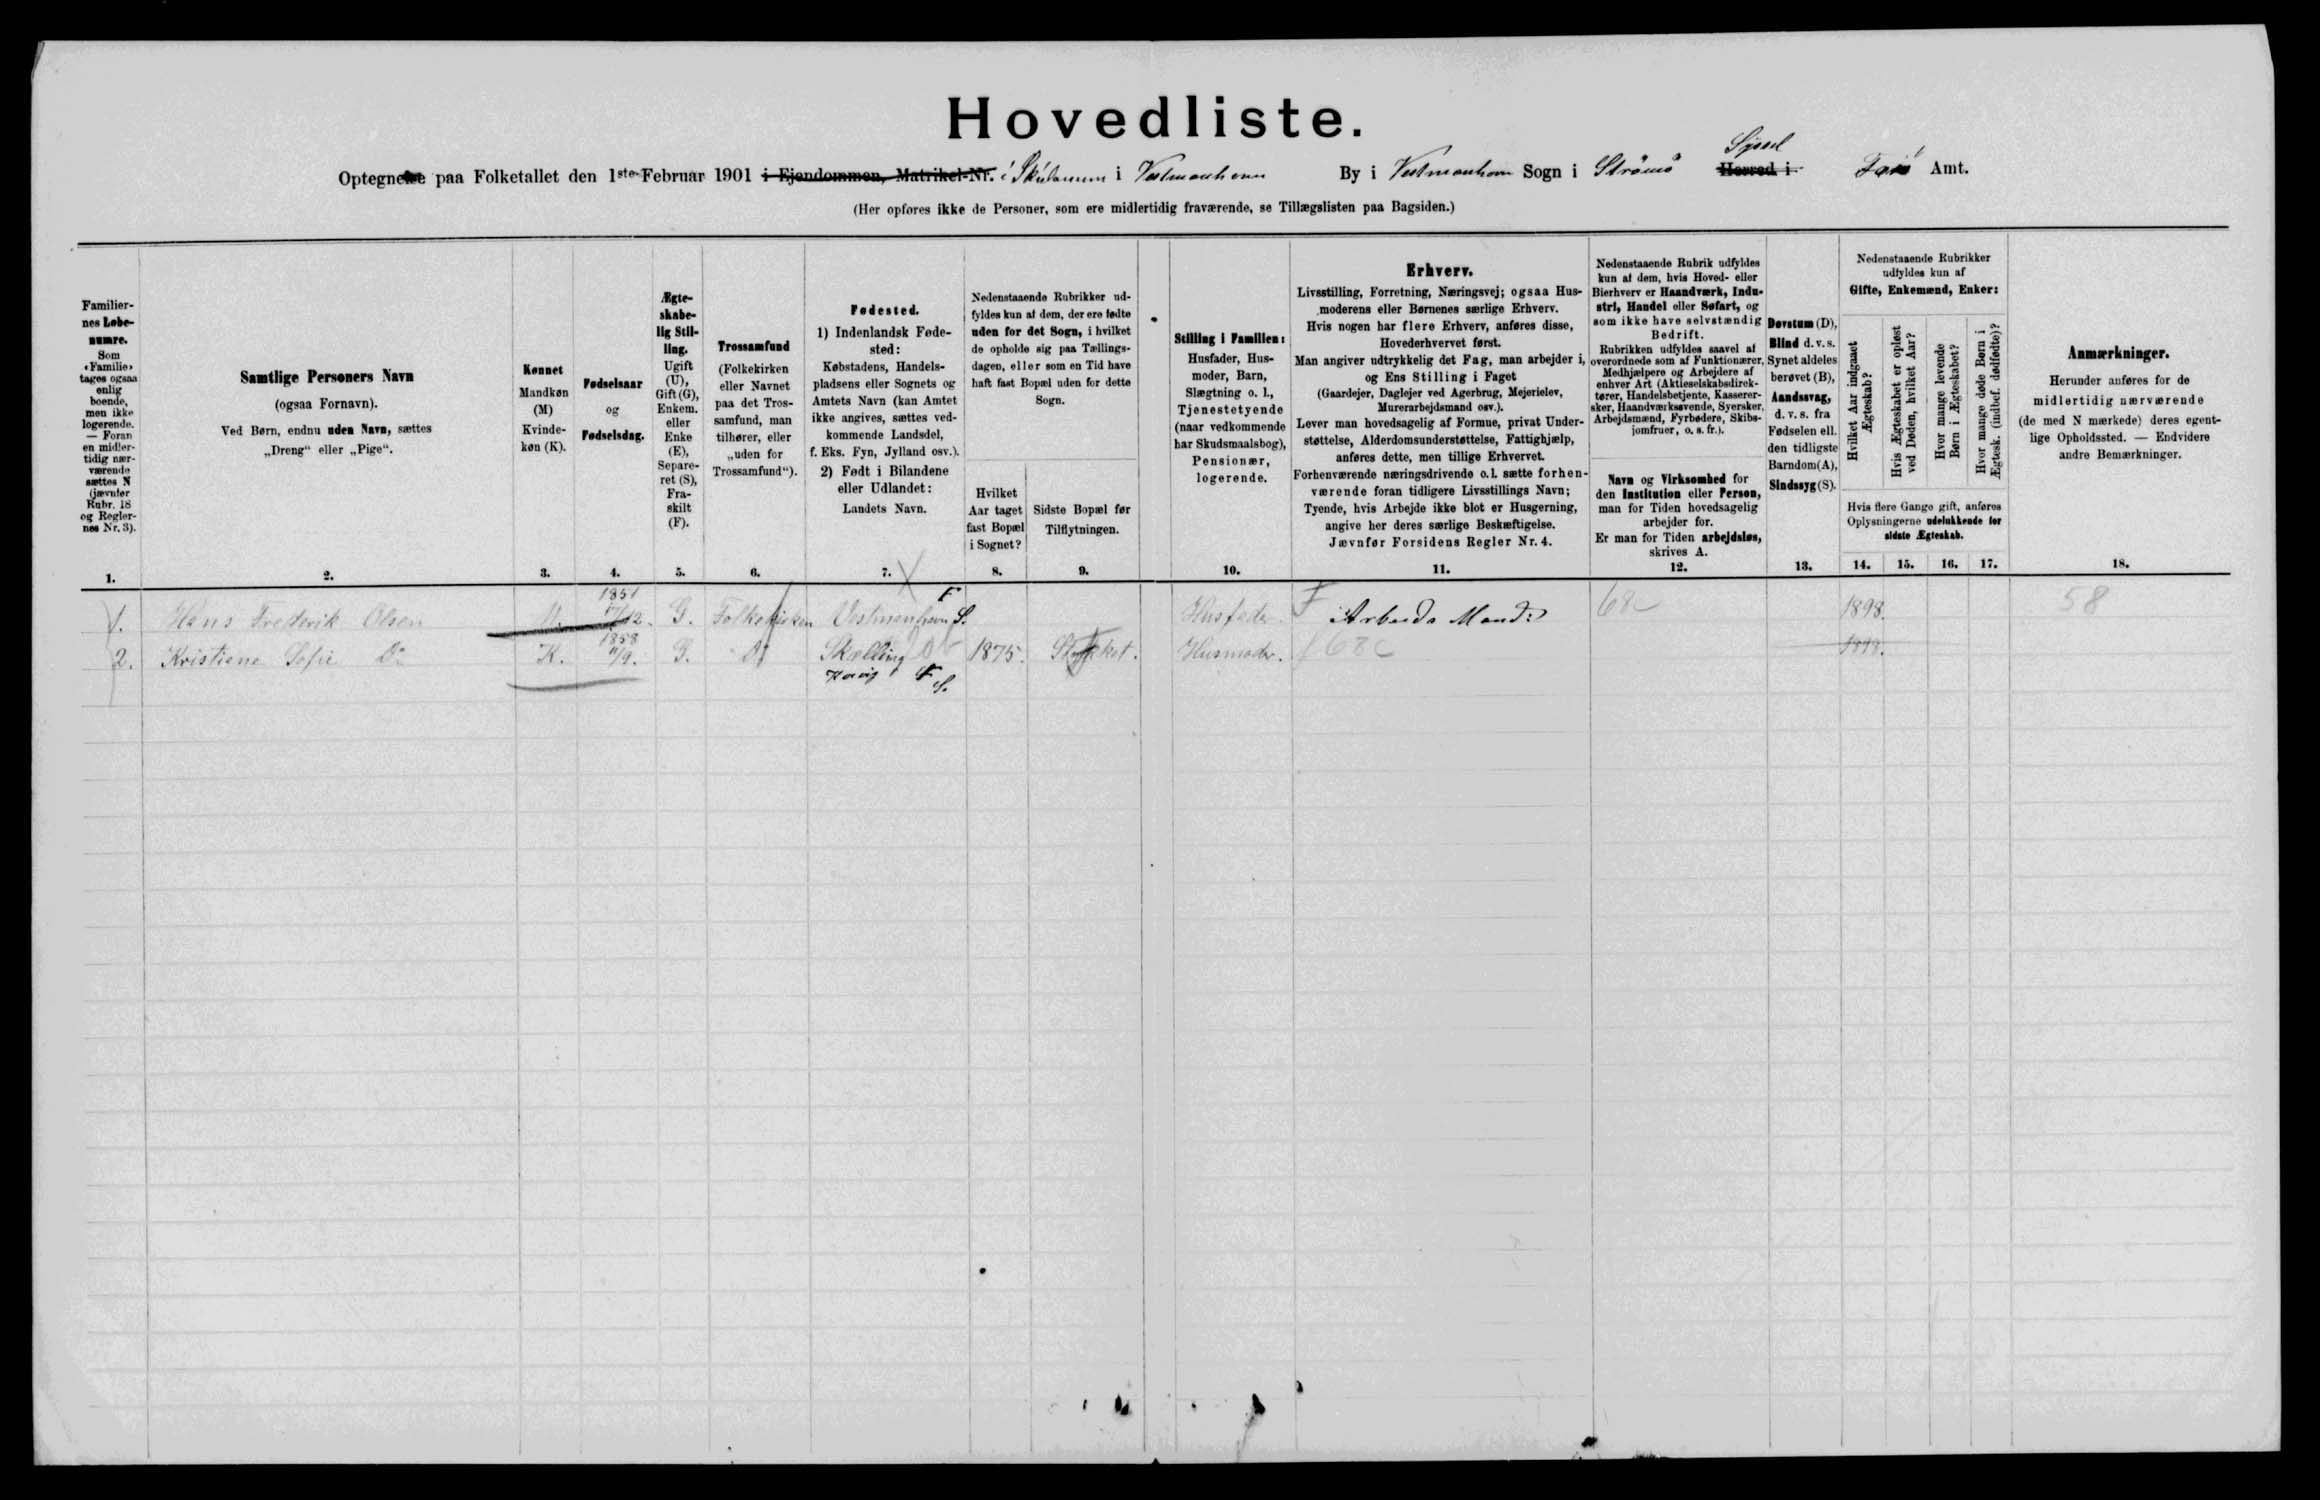 Hovedliste.
Syssel
Optegnelse paa Folketallet den 1ste Februar 1901 i Ejendommen, Matrikel-Nr. i i Vestmanhavn By i Vestmanhavn Sogn i Strömö Herred i Færø Amt.
(Her opføres ikke de Personer, som ere midlertidig fraværende, se Tillægslisten paa Bagsiden.)
Familier-
nes Løbe-
numre.
Som
«Familie»
tages ogsaa
enlig
boende,
men ikke
logerende.
— Foran
en midler-
tidig nær-
værende
sættes N
(jævnfør
Rubr. 18
og Regler-
nes Nr. 3).
1.
Samtlige Personers Navn
(ogsaa Fornavn).
Ved Børn, endnu uden Navn, sættes
„Dreng“ eller „Pige“.
2.
Kønnet
Mandkøn
(M)
Kvinde-
køn (K).
3.
Fødselsaar
og
Fødselsdag.
4.
Ægte-
skabe-
lig Stil-
ling.
Ugift
(U),
Gift (G),
Enkem.
eller
Enke
(E),
Separe-
ret (S),
Fra-
skilt
(F).
5.
Trossamfund
(Folkekirken
eller Navnet
paa det Tros-
samfund, man
tilhører, eller
„uden for
Trossamfund“).
6.
Fødested.
1) Indenlandsk Føde-
sted:
Købstadens, Handels-
pladsens eller Sognets og
Amtets Navn (kan Amtet
ikke angives, sættes ved-
kommende Landsdel,
f. Eks. Fyn, Jylland osv.).
2) Født i Bilandene
eller Udlandet:
Landets Navn.
7.
Nedenstaaende Rubrikker ud-
fyldes kun af dem, der ere fødte
uden for det Sogn, i hvilket
de opholde sig paa Tællings-
dagen, eller som en Tid have
haft fast Bopæl uden for dette
Sogn.
Hvilket
Aar taget
fast Bopæl
i Sognet?
8.
Sidste Bopæl før
Tilflytningen.
9.
Stilling i Familien:
Husfader, Hus-
moder, Barn,
Slægtning o. l.,
Tjenestetyende
(naar vedkommende
har Skudsmaalsbog),
Pensionær,
logerende.
10.
Erhverv.
Livsstilling, Forretning, Næringsvej; ogsaa Hus-
moderens eller Børnenes særlige Erhverv.
Hvis nogen har flere Erhverv, anføres disse,
Hovederhvervet først.
Man angiver udtrykkelig det Fag, man arbejder i,
og Ens Stilling i Faget
(Gaardejer, Daglejer ved Agerbrug, Mejerielev,
Murerarbejdsmand osv.).
Lever man hovedsagelig af Formue, privat Under-
støttelse, Alderdomsunderstøttelse, Fattighjælp,
anføres dette, men tillige Erhvervet.
Forhenværende næringsdrivende o. l. sætte forhen-
værende foran tidligere Livsstillings Navn;
Tyende, hvis Arbejde ikke blot er Husgerning,
angive her deres særlige Beskæftigelse.
Jævnfør Forsidens Regler Nr. 4.
11.
Nedenstaaende Rubrik udfyldes
kun af dem, hvis Hoved- eller
Bierhverv er Haandværk, Indu-
stri, Handel eller Søfart, og
som ikke have selvstændig
Bedrift.
Rubrikken udfyldes saavel af
overordnede som af Funktionærer,
Medhjælpere og Arbejdere af
enhver Art (Aktieselskabsdirek-
tører, Handelsbetjente, Kasserer-
sker, Haandværkssvende, Syersker,
Arbejdsmænd, Fyrbødere, Skibs-
jomfruer, o. s. fr.).
Navn og Virksomhed for
den Institution eller Person,
man for Tiden hovedsagelig
arbejder for.
Er man for Tiden arbejdsløs,
skrives A.
12.
Døvstum (D),
Blind d. v. s.
Synet aldeles
berøvet (B),
Aandssvag,
d. v. s. fra
Fødselen ell.
den tidligste
Barndom (A),
Sindssyg (S).
13.
Nedenstaaende Rubrikker
udfyldes kun af
Gifte, Enkemænd, Enker:
Hvilket Aar indgaaet
Ægteskab?
Hvis Ægteskabet er opløst
ved Døden, hvilket Aar?
Hvor mange levende
Børn i Ægteskabet?
Hvor mange døde Børn i
Ægtesk. (indbef. dødfødte)?
Hvis flere Gange gift, anføres
Oplysningerne udelukkende for
sidste Ægteskab.
14. 15. 16. 17.
Anmærkninger.
Herunder anføres for de
midlertidig nærværende
(de med N mærkede) deres egent-
lige Opholdssted. — Endvidere
andre Bemærkninger.
18.
1. Hans Frederik Olsen M. 1851 17/12. G. Folkekirken Vestmanhavn F S. Husfader. F Arbeids Mand: 68c 1898. 58
2. Kristiane Sofie Do K. 1858 11/9. G. Do Skælling 1875. Husmoder. 68c 1898.
F S.